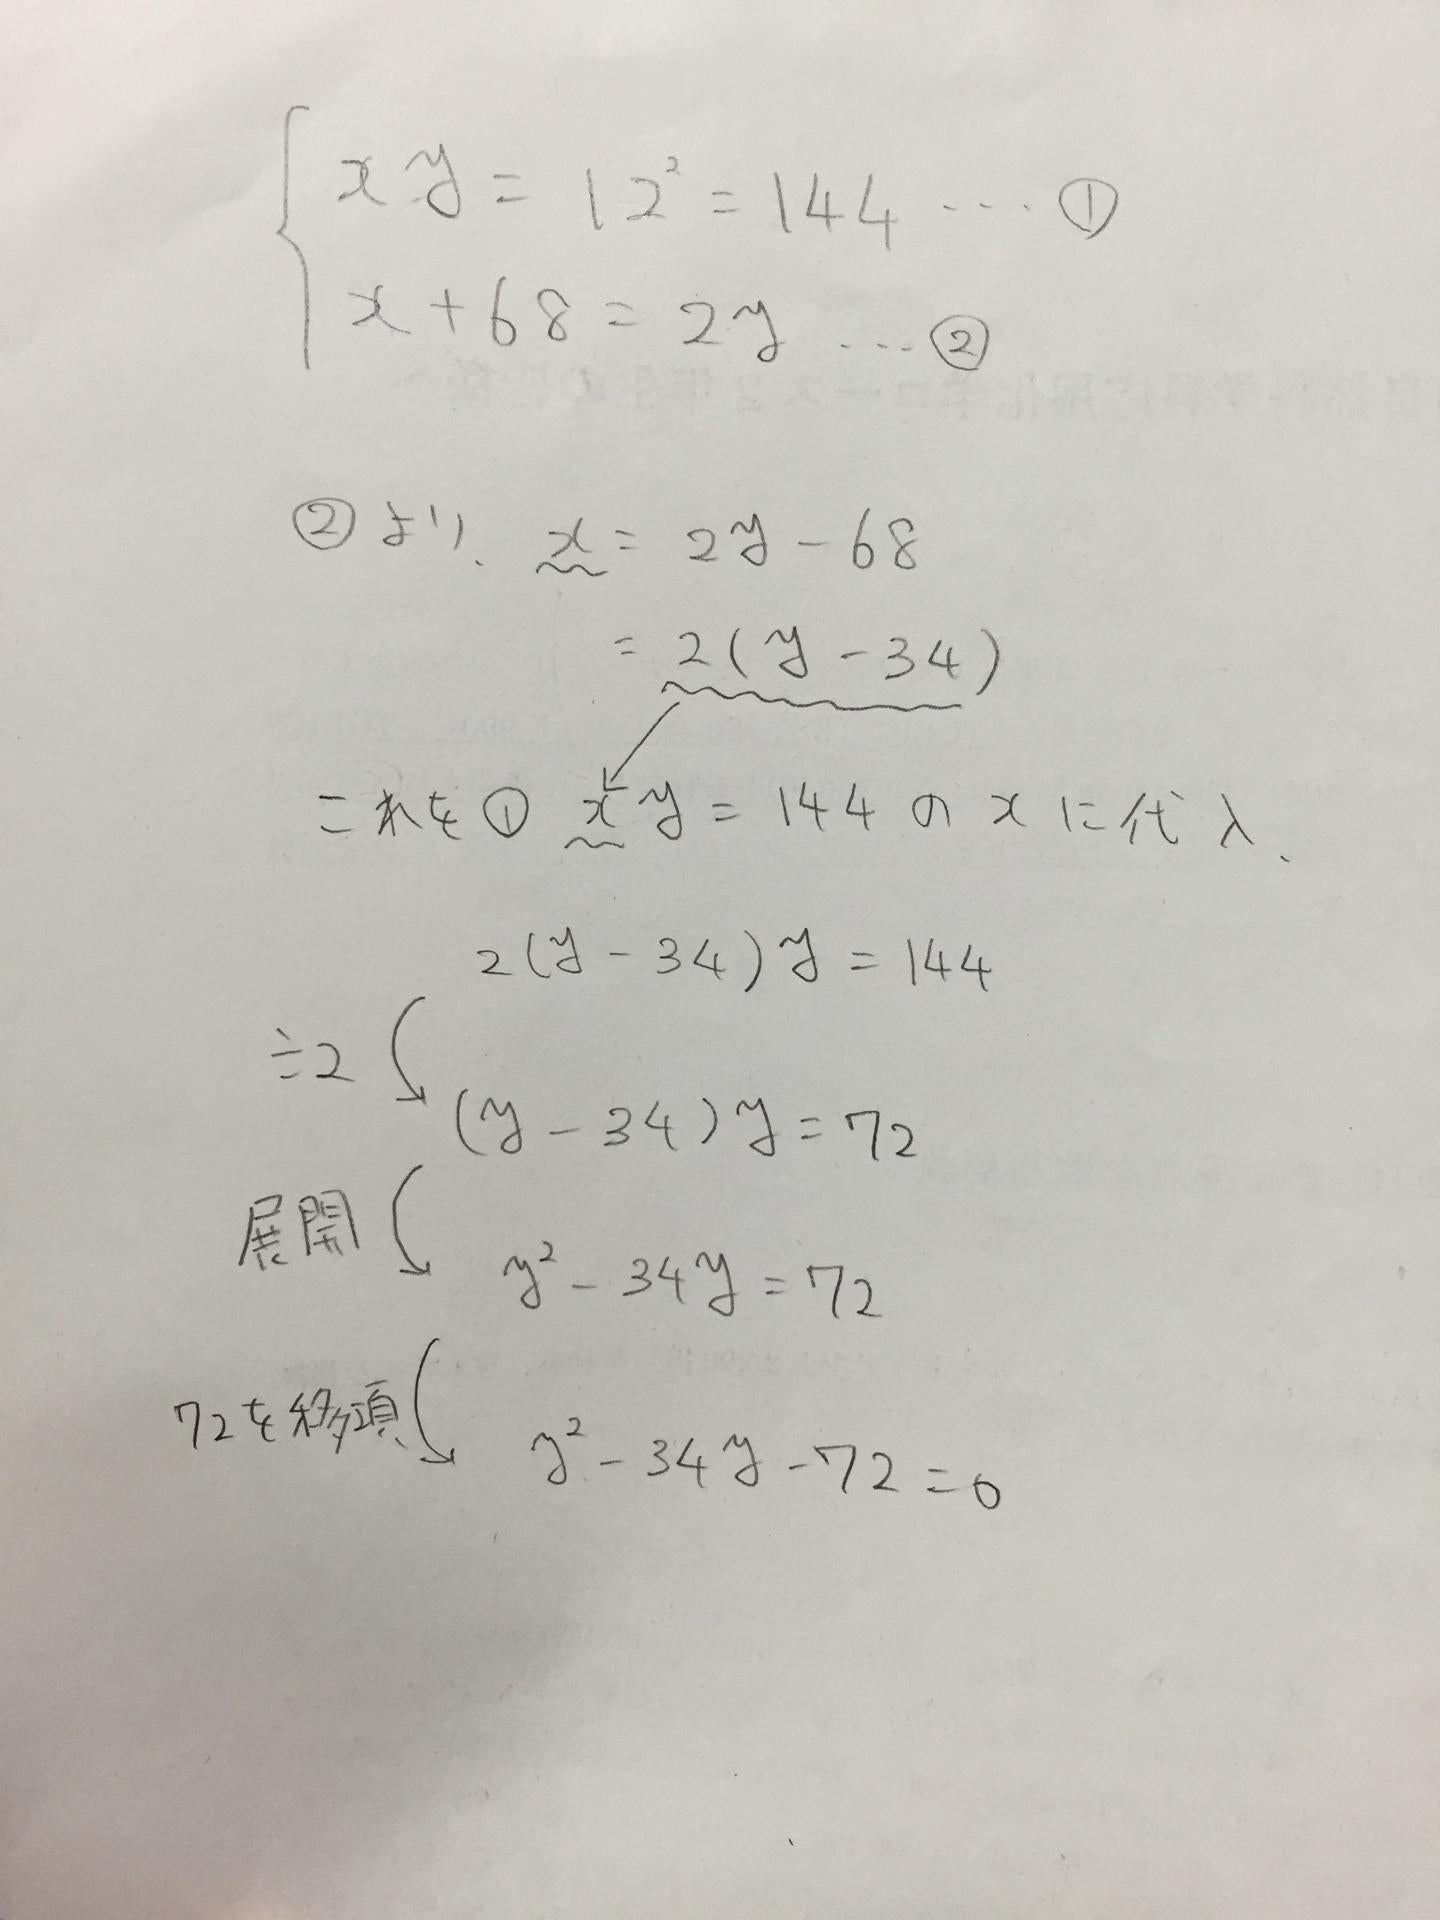 xy = 12² = 144 … ①
x + 68 = 2y … ②
②より、 x = 2y - 68
= 2(y - 34)
これを① xy = 144 の x に代入、
2(y - 34)y = 144
÷2
(y - 34)y = 72
展開
y² - 34y = 72
72を移項
y² - 34y - 72 = 0